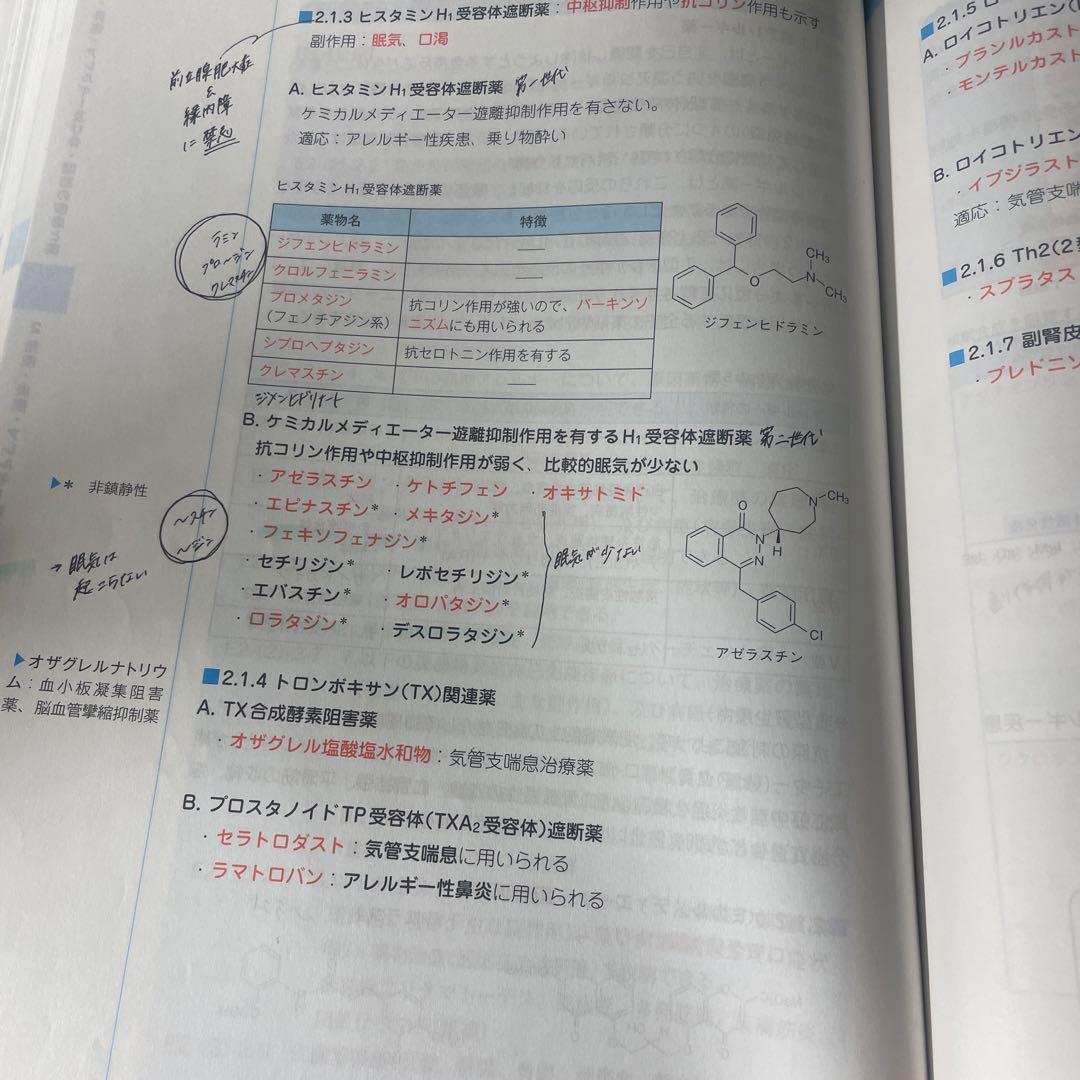 ■2.1.3 ヒスタミンH₁受容体遮断薬：中枢抑制作用や抗コリン作用も示す
副作用：眠気、口渇
前立腺肥大症
&
緑内障
に禁忌
A. ヒスタミンH₁受容体遮断薬 第一世代
ケミカルメディエーター遊離抑制作用を有さない。
適応：アレルギー性疾患、乗り物酔い
ヒスタミンH₁受容体遮断薬
薬物名 特徴
ジフェンヒドラミン ——
クロルフェニラミン ——
プロメタジン
（フェノチアジン系）
抗コリン作用が強いので、パーキンソ
ニズムにも用いられる
シプロヘプタジン 抗セロトニン作用を有する
クレマスチン ——
ジメンヒドリナート
ラミン
プロ〜ジン
クレマスチン
CH₃
N
CH₃
O
ジフェンヒドラミン
B. ケミカルメディエーター遊離抑制作用を有するH₁受容体遮断薬 第二世代
抗コリン作用や中枢抑制作用が弱く、比較的眠気が少ない
・アゼラスチン ・ケトチフェン ・オキサトミド
・エピナスチン* ・メキタジン*
・フェキソフェナジン*
・セチリジン* ・レボセチリジン*
・エバスチン* ・オロパタジン*
・ロラタジン* ・デスロラタジン*
眠気が少ない
▶* 非鎮静性
〜スチン
〜ジン
→ 眠気は
起こらない
N CH₃
O
N
H
N
Cl
アゼラスチン
▶オザグレルナトリウ
ム：血小板凝集阻害
薬、脳血管攣縮抑制薬
■2.1.4 トロンボキサン（TX）関連薬
A. TX合成酵素阻害薬
・オザグレル塩酸塩水和物：気管支喘息治療薬
B. プロスタノイドTP受容体（TXA₂受容体）遮断薬
・セラトロダスト：気管支喘息に用いられる
・ラマトロバン：アレルギー性鼻炎に用いられる
■2.1.5 ロ
A. ロイコトリエン(
・プランルカスト
・モンテルカスト
B. ロイコトリエン
・イブジラスト
適応：気管支喘
■2.1.6 Th2(2
・スプラタス
■2.1.7 副腎皮
・プレドニン